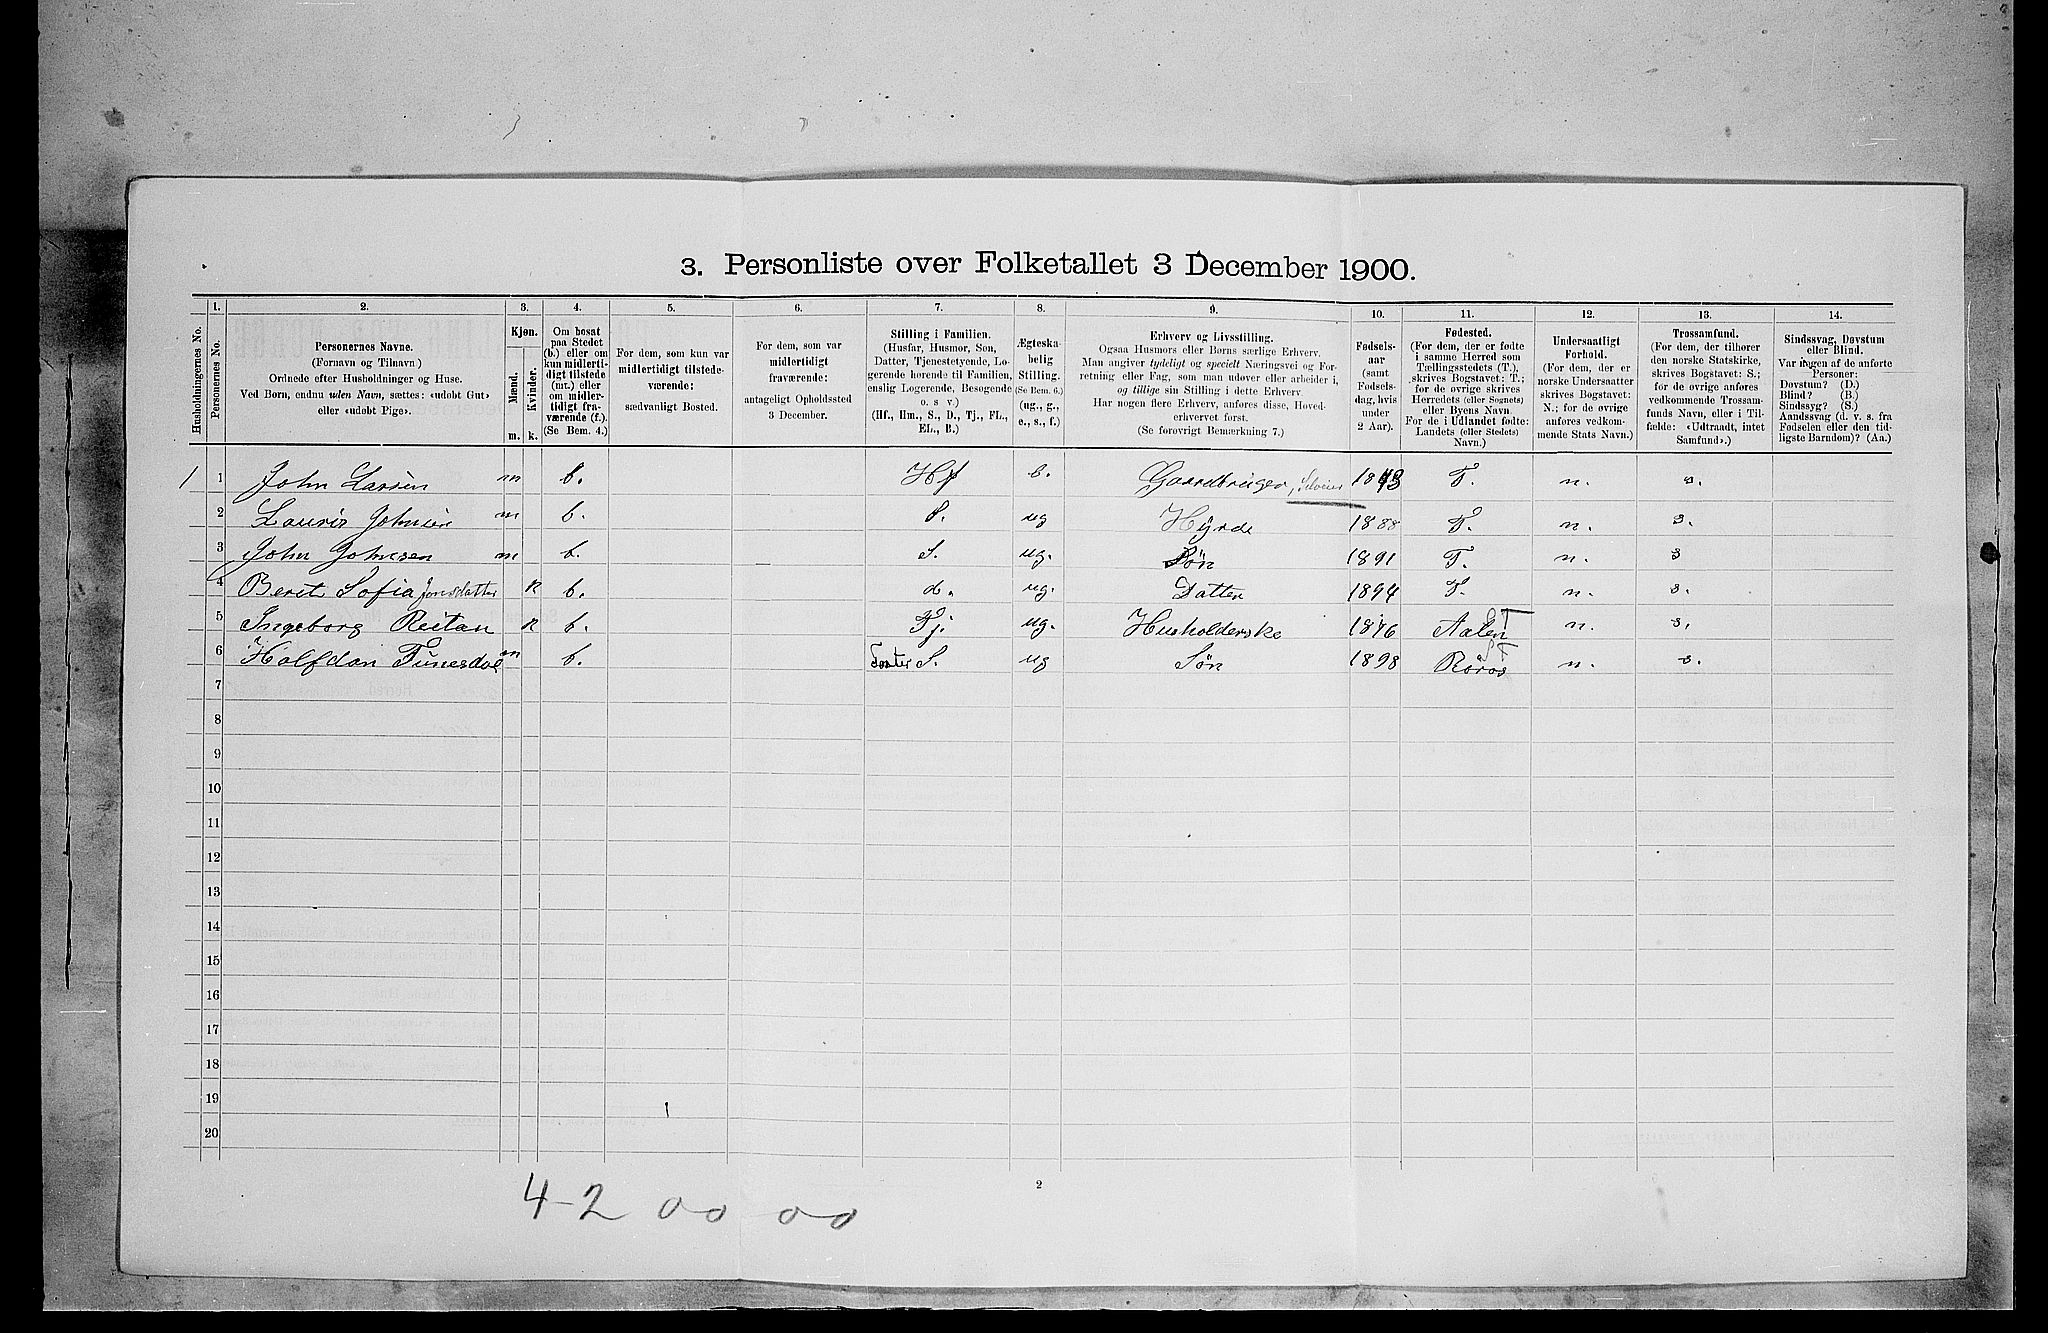 3. Personliste over Folketallet 3 December 1900.
1. 2. 3. 4. 5. 6. 7. 8. 9. 10. 11. 12. 13. 14.
Husholdningernes No.
Personernes No.
Personernes Navne.
(Fornavn og Tilnavn.)
Ordnede efter Husholdninger og Huse.
Ved Børn, endnu uden Navn, sættes: «udøbt Gut»
eller «udøbt Pige».
Kjøn.
Mænd.
Kvinder.
m. k.
Om bosat
paa Stedet
(b.) eller om
kun midlerti-
digt tilstede
(mt.) eller
om midler-
tidigt fra-
værende (f.).
(Se Bem. 4.)
For dem, som kun var
midlertidigt tilstede-
værende:
sædvanligt Bosted.
For dem, som var
midlertidigt
fraværende:
antageligt Opholdssted
3 December.
Stilling i Familien.
(Husfar, Husmor, Søn,
Datter, Tjenestetyende, Lo-
gerende hørende til Familien,
enslig Logerende, Besøgende
o. s v.)
(Hf., Hm., S., D., Tj., FL.,
EL., B.)
Ægteska-
belig
Stilling.
(Se Bem. 6.)
(ug., g.,
e., s., f.)
Erhverv og Livsstilling.
Ogsaa Husmors eller Børns særlige Erhverv.
Man angiver tydeligt og specielt Næringsvei og For-
retning eller Fag, som man udøver eller arbeider i,
og tillige sin Stilling i dette Erhverv.
Har nogen flere Erhverv, anføres disse, Hoved-
erhvervet først.
(Se forøvrigt Bemærkning 7.)
Fødsels-
aar
(samt
Fødsels-
dag, hvis
under
2 Aar).
Fødested.
(For dem, der er fødte
i samme Herred som
Tællingsstedets (T.),
skrives Bogstavet: T.;
for de øvrige skrives
Herredets (eller Sognets)
eller Byens Navn.
For de i Udlandet fødte:
Landets (eller Stedets)
Navn.)
Undersaatligt
Forhold.
(For dem, der er
norske Undersaatter
skrives Bogstavet:
N.; for de øvrige
anføres vedkom-
mende Stats Navn.)
Trossamfund.
(For dem, der tilhører
den norske Statskirke,
skrives Bogstavet: S.;
for de øvrige anføres
vedkommende Trossam-
funds Navn, eller i Til-
fælde: «Udtraadt, intet
Samfund».)
Sindssvag, Døvstum
eller Blind.
Var nogen af de anførte
Personer:
Døvstum? (D.)
Blind? (B.)
Sindssyg? (S.)
Aandssvag (d. v. s. fra
Fødselen eller den tid-
ligste Barndom)? (Aa.)
1 1 John Larsen m b. Hf e. Gaardbruger, Selveier 1843 T. n. s.
2 Lauris Johnsen m b. S. ug Hyrde 1888 T. n. s.
3 John Johnsen m b. S. ug. Søn 1891 T. n. s
4 Berit Sofia Jonsdatter k b. d. ug. Datter 1894 T. n. s.
5 Ingeborg Reitan k b. Tj. ug. Husholderske 1876 Aalen n. s.
6 Halfdan m b. S. ug Søn 1898 Røros n. s.
7
8
9
10
11
12
13
14
15
16
17
18
19
20
2
4-2 00 00